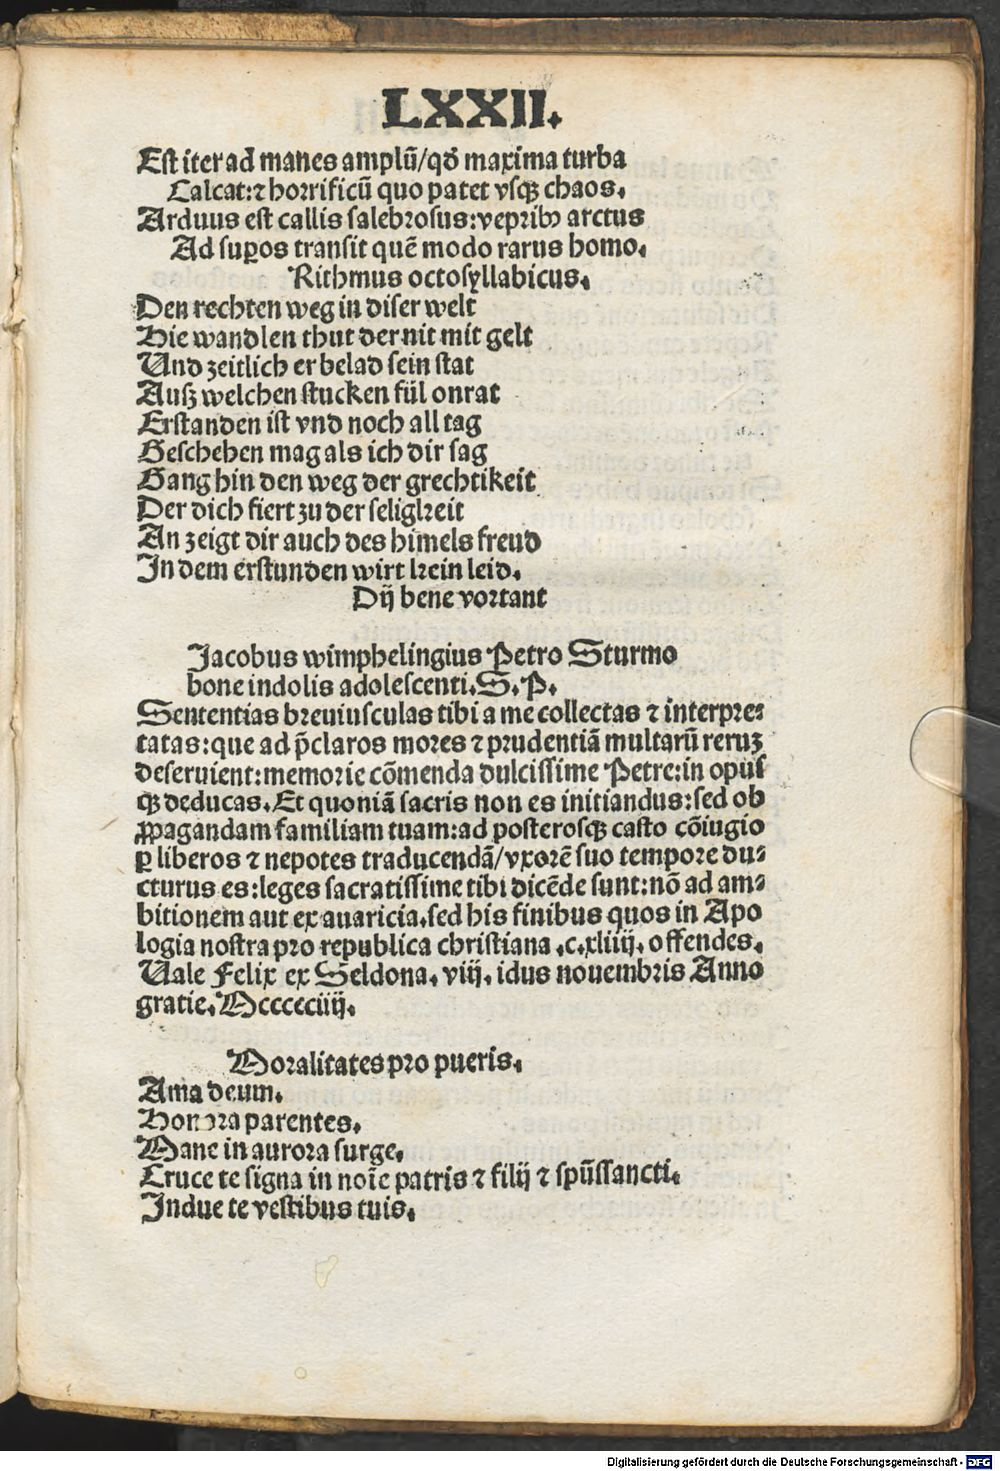 LXXII.
Est iter ad manes amplũ/qđ maxima turba
Calcat:⁊ horrificũ quo patet vsqꝫ chaos.
Arduus est callis salebrosus:veprib⁹ arctus
Ad suꝑos transit quẽ modo rarus homo.
Rithmus octosyllabicus.
Den rechten weg in diser welt
Hie wandlen thut der nit mit gelt
Und zeitlich er belad sein stat
Auß welchen stucken fül onrat
Erstanden ist vnd noch all tag
Geschehen mag als ich dir sag
Gang hin den weg der grechtikeit
Der dich fiert zu der seligkeit
An zeigt dir auch des himels freud
In dem erstunden wirt kein leid.
Dij bene vortant
Jacobus wimphelingius Petro Sturmo
bone indolis adolescenti.S.P.
Sententias breuiusculas tibi a me collectas ⁊ interpre⸗
tatas:que ad p̃claros mores ⁊ prudentiã multarũ reruꝫ
deseruient:memorie cõmenda dulcissime Petre:in opus
qꝫ deducas.Et quoniã sacris non es initiandus:sed ob
ꝓpagandam familiam tuam:ad posterosqꝫ casto cõiugio
ꝑ liberos ⁊ nepotes traducendã/vxorẽ suo tempore du⸗
cturus es:leges sacratissime tibi dicẽde sunt:nõ ad am⸗
bitionem aut ex auaricia.sed his finibus quos in Apo
logia nostra pro republica christiana .c.xliiij. offendes.
Vale Felix ex Seldona. viij. idus nouembris Anno
gratie. Mccccciiij.
Moralitates pro pueris.
Ama deum.
Honora parentes.
Mane in aurora surge.
Cruce te signa in noĩe patris ⁊ filij ⁊ spũssancti.
Indue te vestibus tuis.
Digitalisierung gefördert durch die Deutsche Forschungsgemeinschaft - DFG